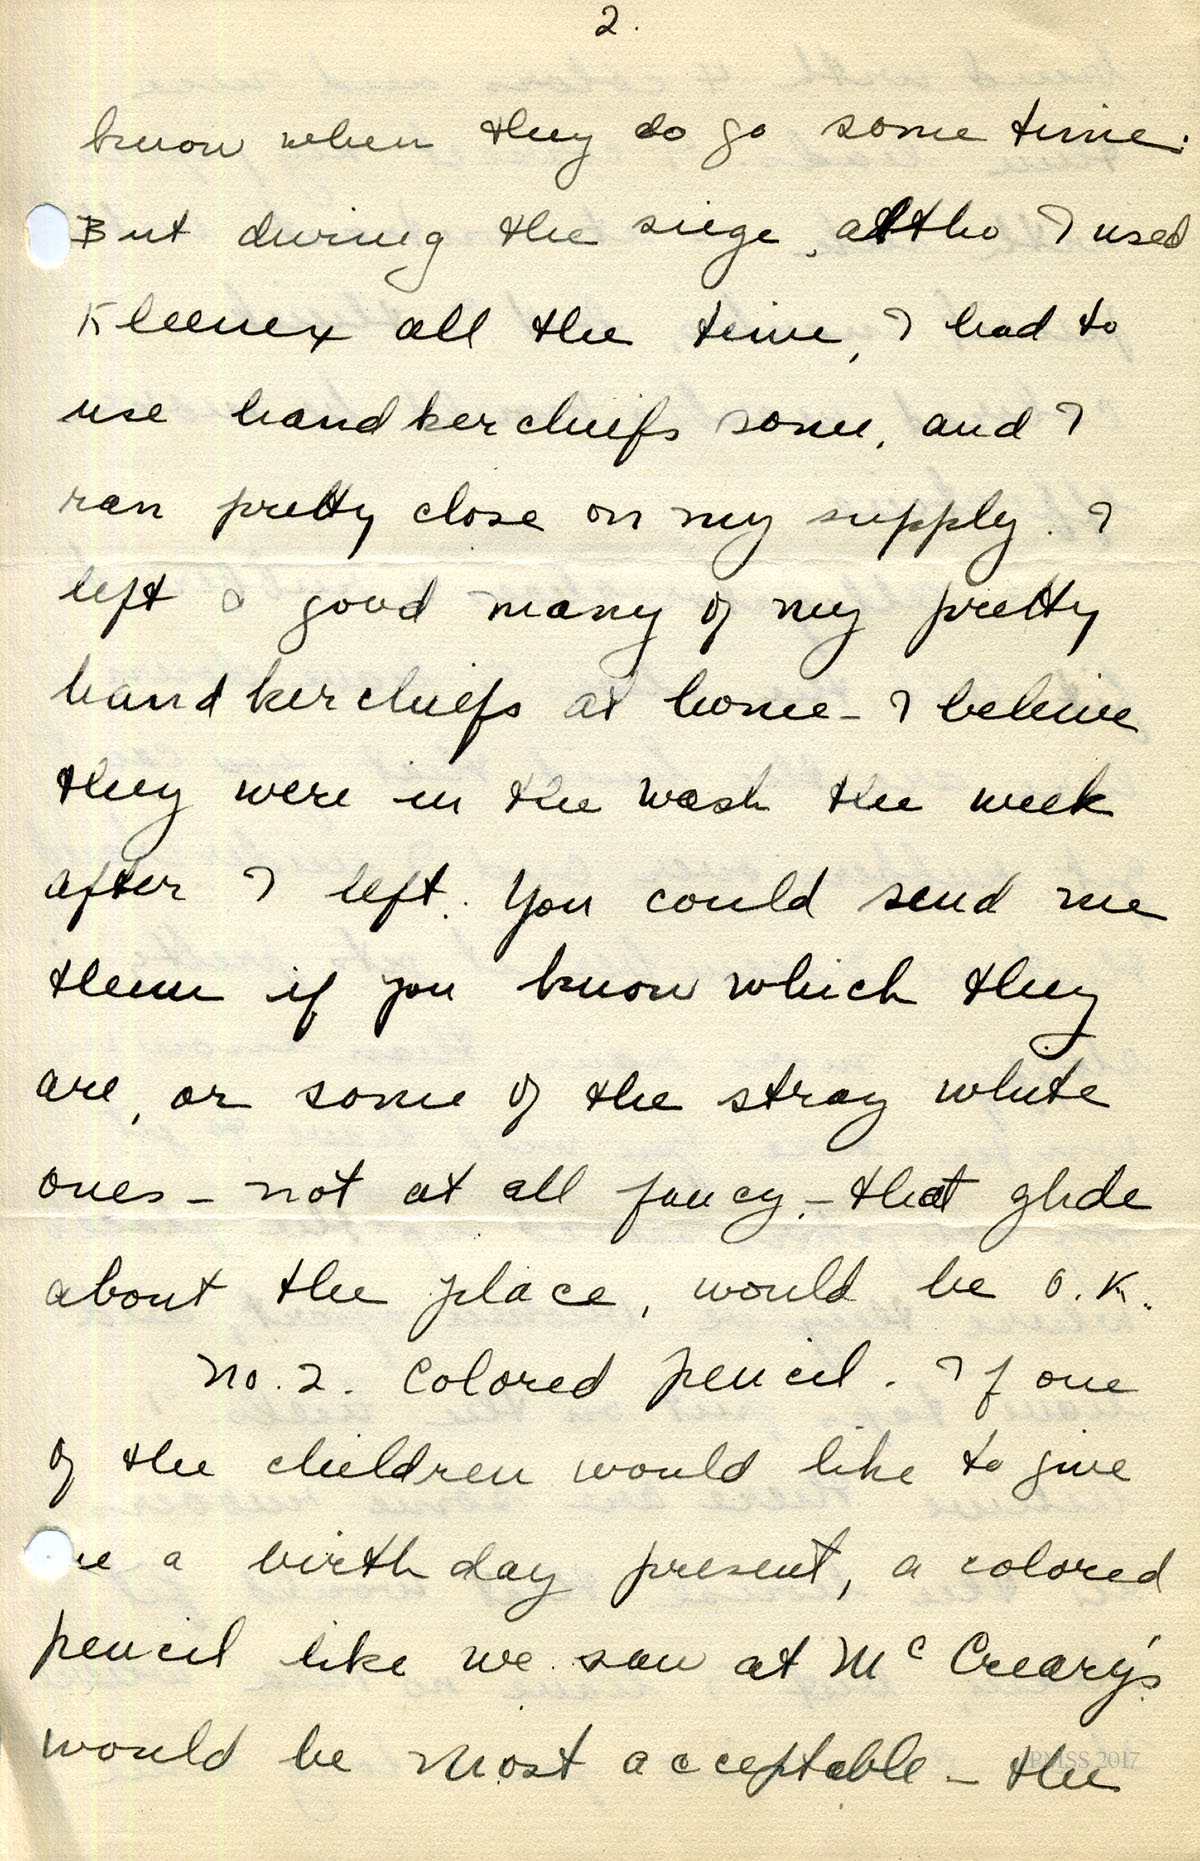 2.
know when they do go some time.
But during the siege, altho I used
Kleenex all the time, I had to
use handkerchiefs some, and I
ran pretty close on my supply. I
left a good many of my pretty
handkerchiefs at home - I believe
they were in the wash the week
after I left. You could send me
them if you know which they
are, or some of the stray white
ones - not at all fancy, - that glide
about the place, would be O.K.
No. 2. Colored pencil. If one
of the children would like to give
me a birthday present, a colored
pencil like we saw at McCreary's
would be most acceptable - the
PMSS 2017